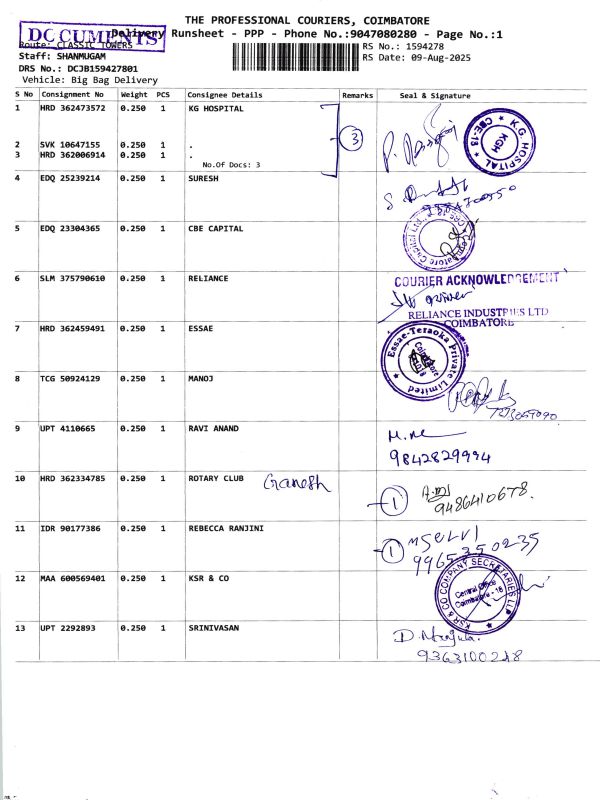 THE PROFESSIONAL COURIERS, COIMBATORE
DOCUMENTS
Delivery Runsheet - PPP - Phone No.:9047080280 - Page No.:1
Route: CLASSIC TOWERS
RS No.: 1594278
Staff: SHANMUGAM
RS Date: 09-Aug-2025
DRS No.: DCJB159427801
Vehicle: Big Bag Delivery
S No Consignment No Weight PCS Consignee Details Remarks Seal & Signature
1 HRD 362473572 0.250 1 KG HOSPITAL
3
K.G. HOSPITAL
KGH
CBE-13
2 SVK 10647155 0.250 1 .
3 HRD 362006914 0.250 1 .
No.Of Docs: 3
4 EDQ 25239214 0.250 1 SURESH
5 EDQ 23304365 0.250 1 CBE CAPITAL
6 SLM 375790610 0.250 1 RELIANCE
COURIER ACKNOWLEDGEMENT
RELIANCE INDUSTRIES LTD
COIMBATORE
7 HRD 362459491 0.250 1 ESSAE
Essae-Teraoka Private Limited
Coimbatore
8 TCG 50924129 0.250 1 MANOJ
9 UPT 4110665 0.250 1 RAVI ANAND
9842829994
10 HRD 362334785 0.250 1 ROTARY CLUB Ganesh
1
9486410678.
11 IDR 90177386 0.250 1 REBECCA RANJINI
1
M SELVI
9965350235
12 MAA 600569401 0.250 1 KSR & CO
KSR & CO COMPANY SECRETARIES LLP
Central Office
Coimbatore - 18
13 UPT 2292893 0.250 1 SRINIVASAN
D. Manjula.
9363100248